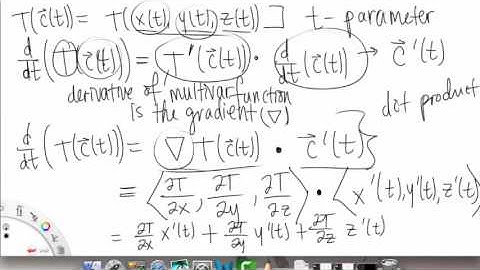 T(c⃗(t)) = T(x(t), y(t), z(t)) ] t - parameter
d/dt (T(c⃗(t))) = T'(c⃗(t)) · d/dt (c⃗(t)) → c⃗'(t)
derivative of multivar function
is the gradient (∇)
dot product
d/dt (T(c⃗(t))) = ∇T(c⃗(t)) · c⃗'(t) }
≡ ⟨∂T/∂x, ∂T/∂y, ∂T/∂z⟩ · ⟨x'(t), y'(t), z'(t)⟩
= ∂T/∂x x'(t) + ∂T/∂y y'(t) + ∂T/∂z z'(t)